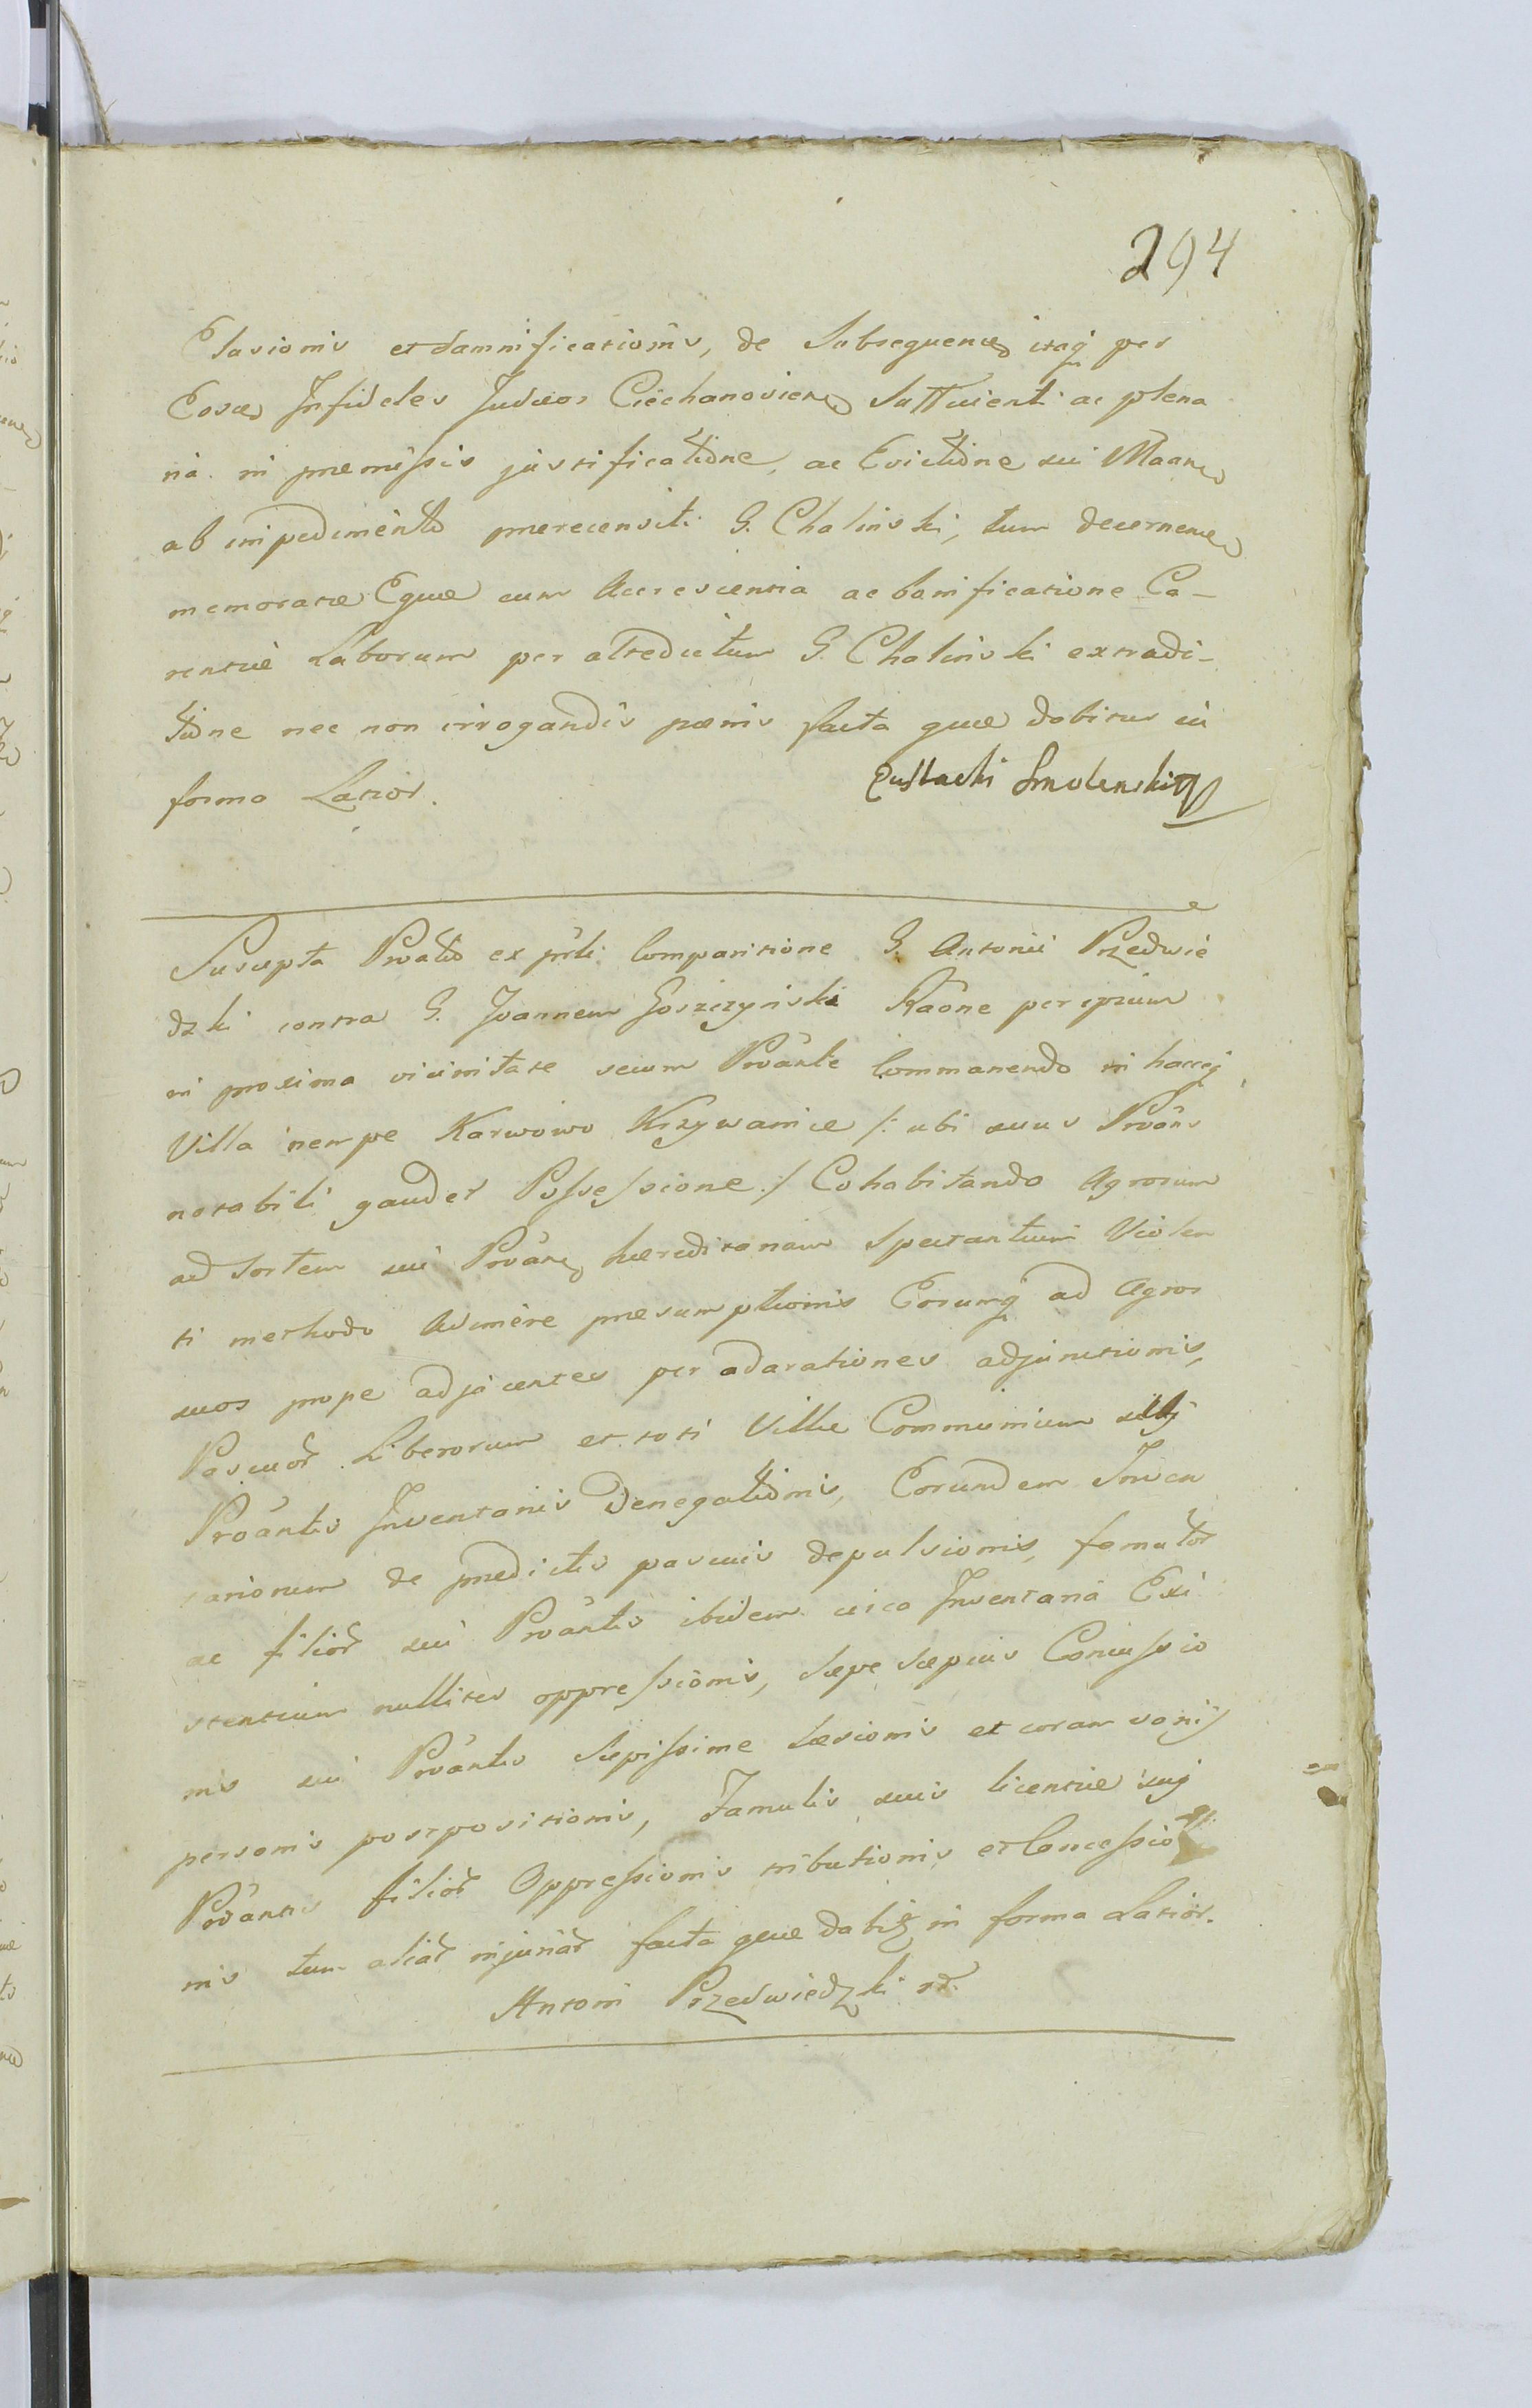 294
Elusionis et damnificationis, de Subsequenci itaq per
Eosd Infideles Judæos Ciechanoviens Sufficienti ac plena
ria in præmissis justificatione, ac Evictione sui Maan
ab impedimento prærecensiti G. Chalinski, tum decernen
memoratæ Equæ cum Accrescentia ac bonificatione Ca-
rentiæ Laborum per atsedictum G. Chalinski extradi-
tione nec non irrogandis pœnis facta quæ dabitur in
forma Latior.
Eustachi Smolenski
Suscepta Proatio ex prti Comparitione G. Antonii Przedwie
dzki contra G. Joannem Goszczynski Raône per ipsum
in proxima vicinitate secum Proânte Commanendo in hacceq
Villa nempe Karwowo Krzywanice /: ubi suus Proâns
notabili gaudet Possessione :/ Cohabitando Agrorum
ad Sortem sui Proân hæreditariam Spectantium Violen
ti methodo Adimere præsumptionis Eorumq ad Agros
suos prope adjacentes per adarationes adjunctionis,
Pascuor Liberorum et toti Villæ Communium
Proântis Inventariis Denegationis, Eorundem Inven
tariorum de prædictis pascuis depulsionis, famulor
ac filior sui Proântis ibidem circa Inventaria Exi
stentium nulliter oppressionis, Sæpe Sæpius Concussio
nis sui Proântis Sæpissime Læsionis et coram varijs
personis postpositionis, Famulis suis licentiæ suj
Proântis filior Oppressionis tributionis et Concessio
nis tum aliar injuriar facta quæ dabitq in forma Latior.
Antoni Przedwiedzki